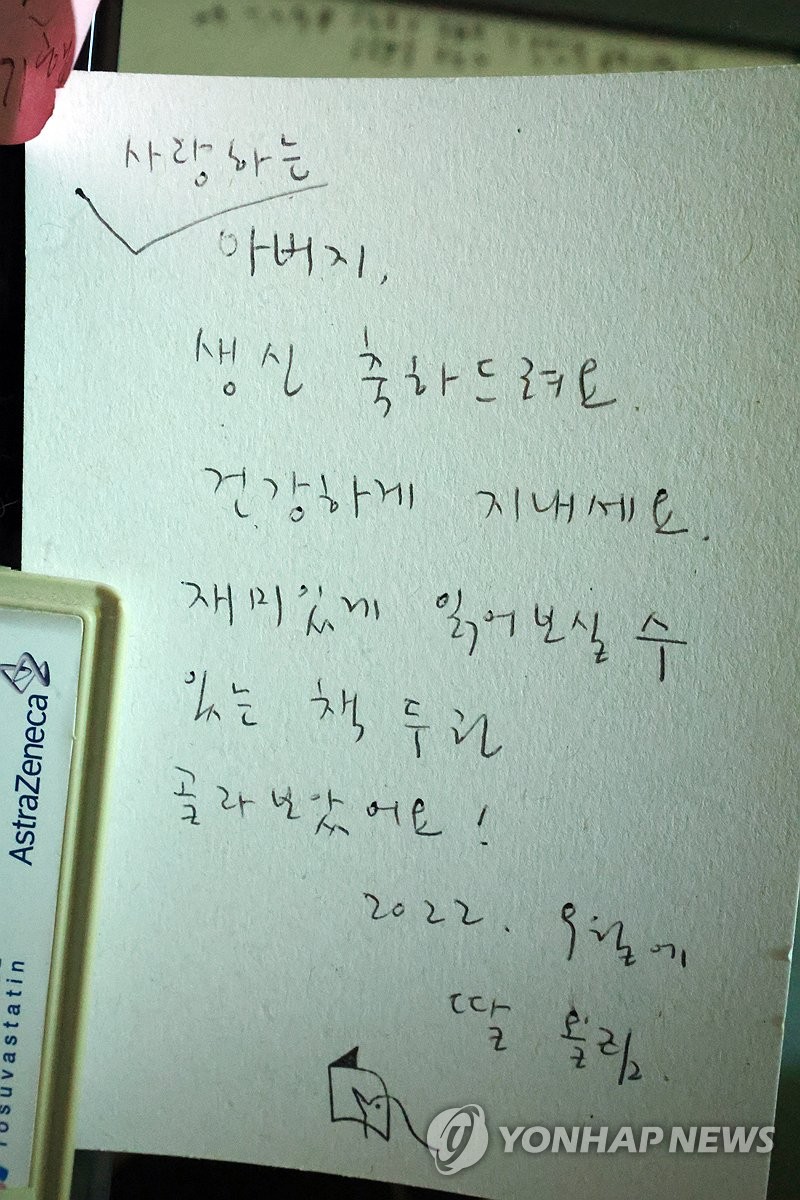 사랑하는
아버지,
생신 축하드려요.
건강하게 지내세요.
재미있게 읽어보실 수
있는 책 두권
골라보았어요!
2022.
딸
AstraZeneca
rosuvastatin
YONHAP NEWS